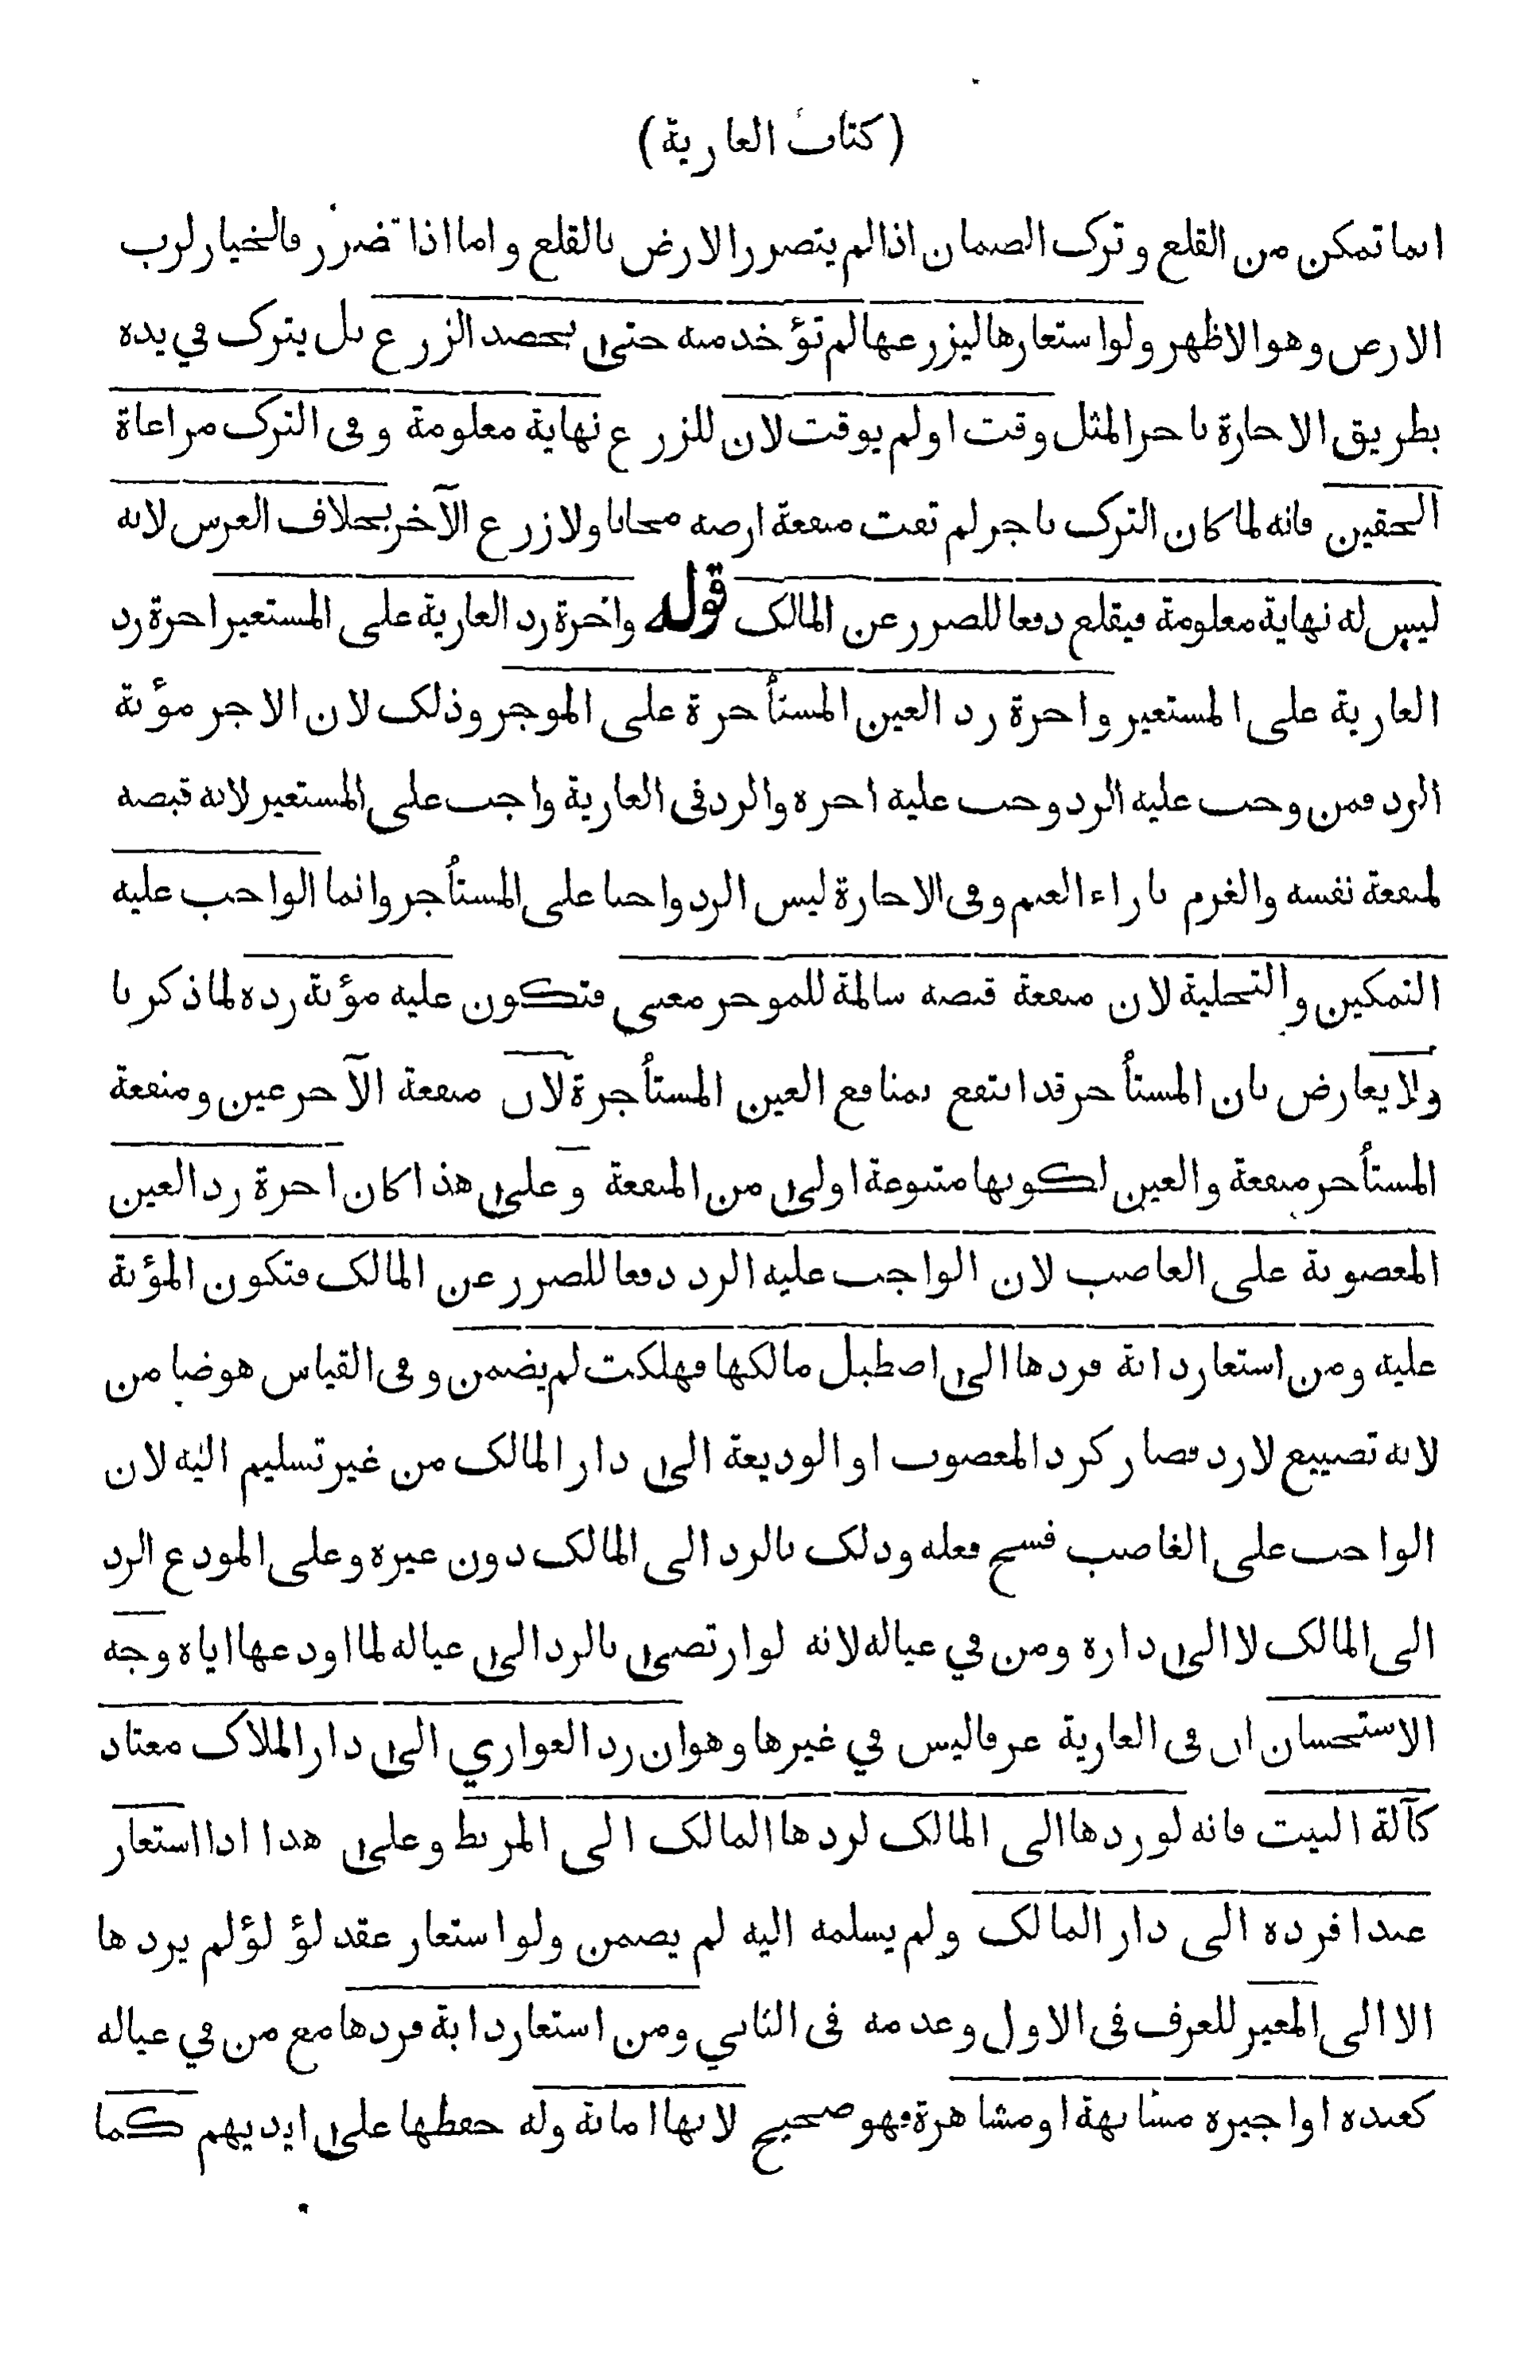 (كتاب العارية)
انما تمكن من القلع وترك الضمان اذا لم يتضرر الارض بالقلع واما اذا تضرر فالخيار لرب
الارض وهو الاظهر ولو استعارها ليزرعها لم تؤخذ منه حتى يحصد الزرع بل يترك في يده
بطريق الاجارة باجر المثل وقت او لم يوقت لان للزرع نهاية معلومة وفى الترك مراعاة
الحقين فانه لما كان الترك باجر لم تفت منفعة ارضه مجانا ولا زرع الآخر بخلاف الغرس لانه
ليس له نهاية معلومة فيقلع دفعا للضرر عن المالك قوله واجرة رد العارية على المستعير اجرة رد
العارية على المستعير واجرة رد العين المستأجرة على الموجر وذلك لان الاجر مؤنة
الرد فمن وجب عليه الرد وجب عليه اجره والرد فى العارية واجب على المستعير لانه قبضه
لمنفعة نفسه والغرم بازاء الغنم وفى الاجارة ليس الرد واجبا على المستأجر وانما الواجب عليه
التمكين والتخلية لان منفعة قبضه سالمة للموجر معنى فتكون عليه مؤنة رده لما ذكرنا
ولا يعارض بان المستأجر قد انتفع بمنافع العين المستأجرة لان منفعة الآجر عين ومنفعة
المستأجر منفعة والعين لكونها متبوعة اولى من المنفعة وعلى هذا كان اجرة رد العين
المغصوبة على الغاصب لان الواجب عليه الرد دفعا للضرر عن المالك فتكون المؤنة
عليه ومن استعار دابة فردها الى اصطبل مالكها فهلكت لم يضمن وفى القياس هو ضامن
لانه تضييع لا رد فصار كرد المغصوب او الوديعة الى دار المالك من غير تسليم اليه لان
الواجب على الغاصب فسخ فعله وذلك بالرد الى المالك دون غيره وعلى المودع الرد
الى المالك لا الى داره ومن في عياله لانه لو ارتضى بالرد الى عياله لما اودعها اياه وجه
الاستحسان ان فى العارية عرفا ليس في غيرها وهو ان رد العواري الى دار الملاك معتاد
كآلة البيت فانه لو ردها الى المالك لردها المالك الى المربط وعلى هذا اذا استعار
عبدا فرده الى دار المالك ولم يسلمه اليه لم يضمن ولو استعار عقد لؤلؤ لم يردها
الا الى المعير للعرف فى الاول وعدمه فى الثاني ومن استعار دابة فردها مع من في عياله
كعبده او اجيره مسانهة او مشاهرة فهو صحيح لانها امانة وله حفظها على ايديهم كما